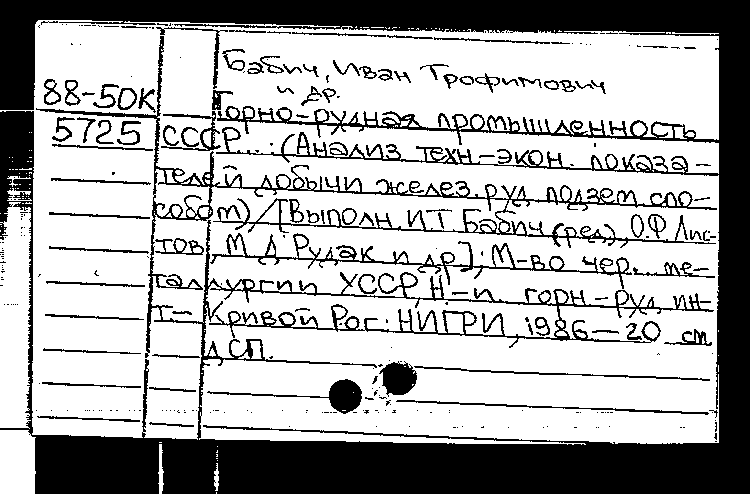 Бабич, Иван Трофимович
и др.
88-50К Горно-рудная промышленность
5725 СССР...: (Анализ техн-экон. показа-
телей добычи желез. руд подзем. спо-
собом) / [Выполн. И Т Бабич (ред.), О.Ф. Лис-
тов, М Д Рудак и др.]; М-во чер. ме-
таллургии УССР, Н.-и. горн-руд. ин-
т. - Кривой Рог: НИГРИ, 1986 - 20 см
ДСП.